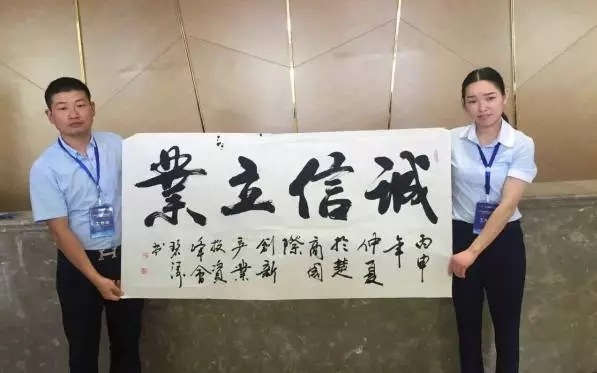 誠信立業
丙申
年
仲夏
於楚
商國
際
創新
产業
投資
峰會
书